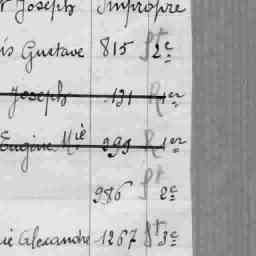 Joseph Impropre
is Gustave 815 St 2e
Joseph 131 R 1er
Eugène Mie 299 R 1er
986 St 2e
ie Alexandre 1267 St 3e